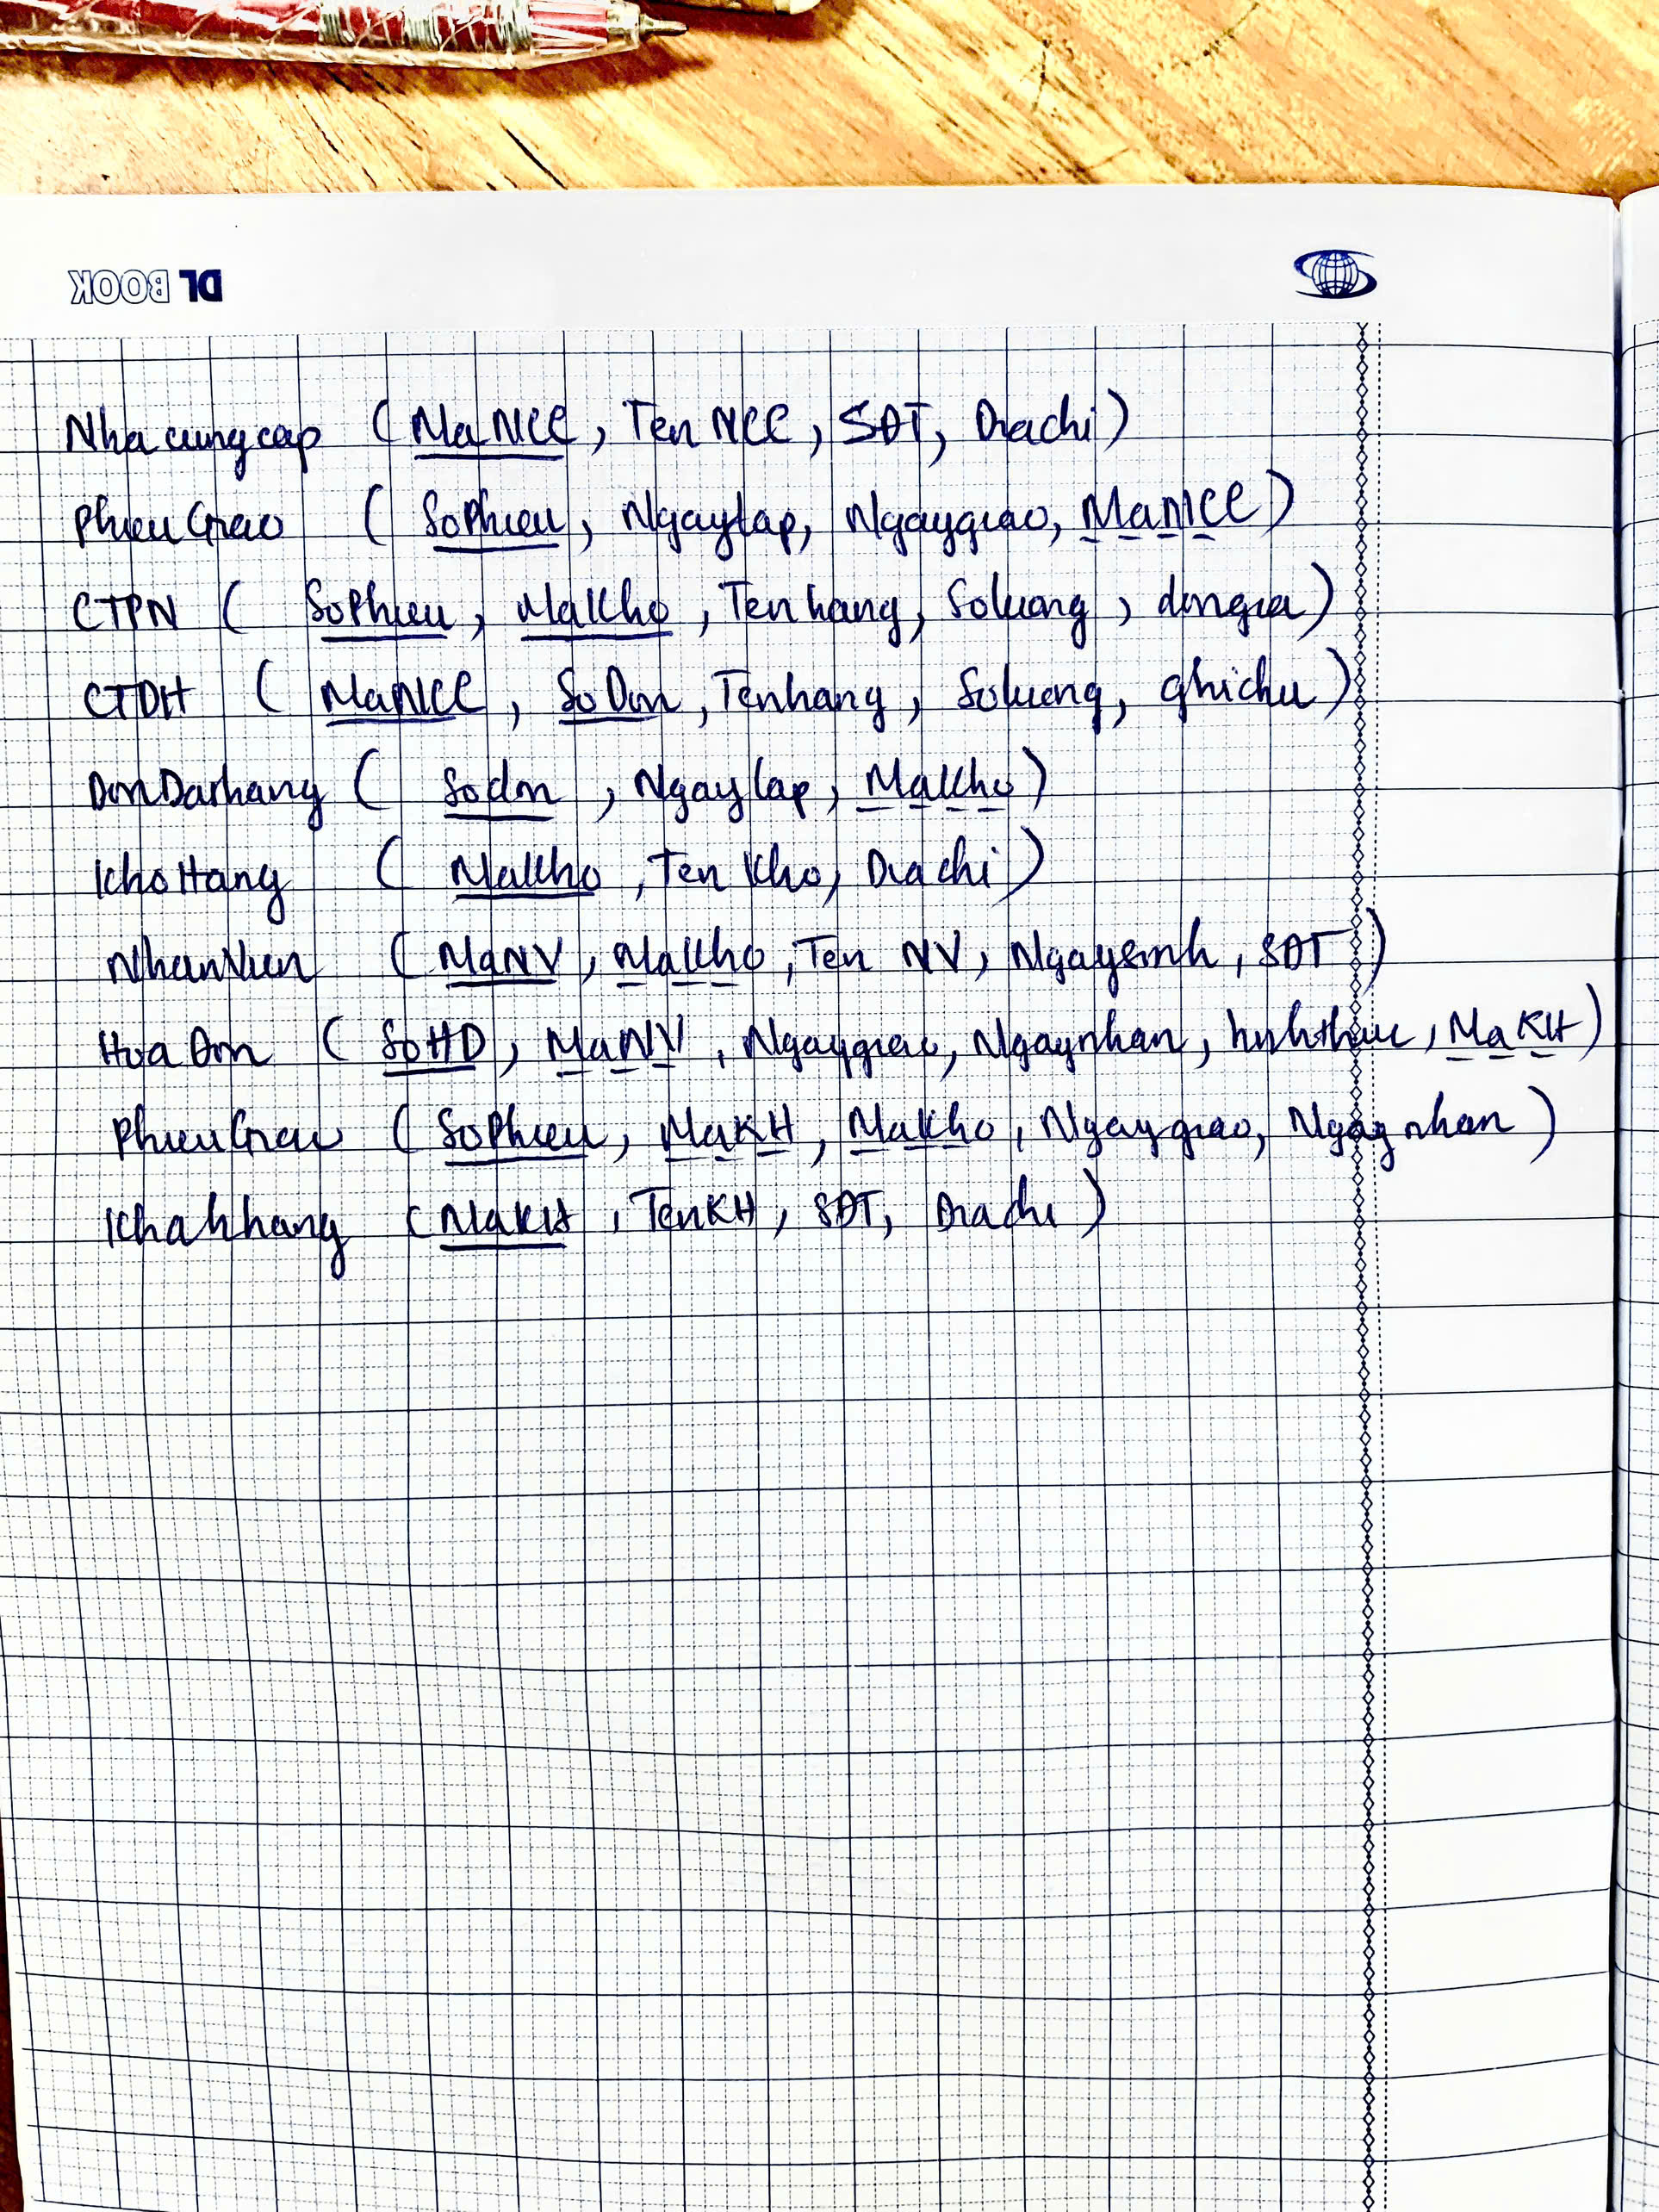 DL BOOK
Nhacungcap (MaNCC, TenNCC, SĐT, Diachi)
PhieuGiao (SoPhieu, Ngaylap, Ngaygiao, MaNCC)
CTPN (SoPhieu, MaKho, Tenhang, Soluong, dongia)
CTDH (MaNCC, SoDon, Tenhang, Soluong, ghichu)
DonDathang (Sodon, Ngaylap, MaKho)
KhoHang (MaKho, TenKho, Diachi)
NhanVien (MaNV, MaKho, Ten NV, Ngaysinh, SĐT)
HoaDon (SoHD, MaNV, Ngaygiao, Ngaynhan, hinhthuc, MaKH)
PhieuGiao (SoPhieu, MaKH, Makho, Ngaygiao, Ngaynhan)
Khahhang (MaKH, TenKH, SĐT, Diachi)